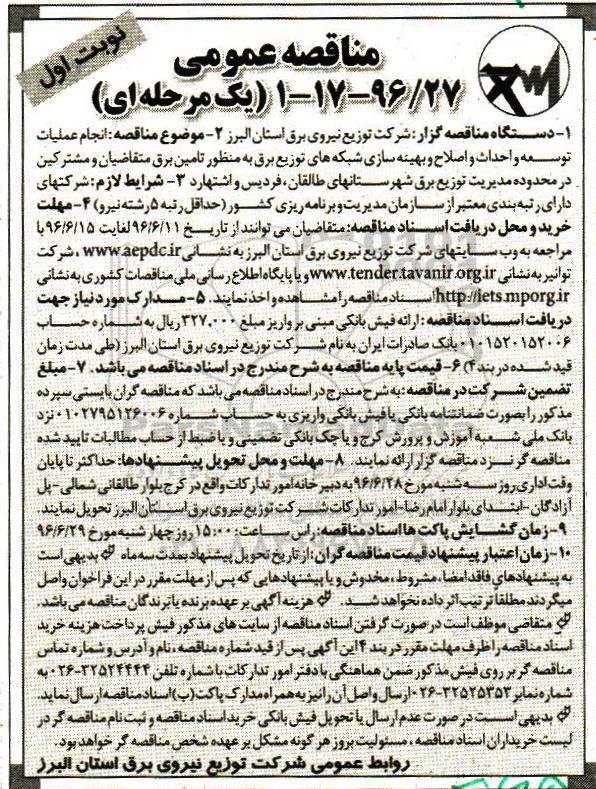 نوبت اول
مناقصه عمومی
۱-۱۷-۹۶/۲۷ (یک مرحله ای)
۱-دستگاه مناقصه گزار: شرکت توزیع نیروی برق استان البرز ۲-موضوع مناقصه: انجام عملیات
توسعه و احداث و اصلاح و بهینه سازی شبکه های توزیع برق به منظور تامین برق متقاضیان و مشترکین
در محدوده مدیریت توزیع برق شهرستانهای طالقان، فردیس و اشتهارد ۳- شرایط لازم: شرکتهای
دارای رتبه بندی معتبر از سازمان مدیریت و برنامه ریزی کشور (حداقل رتبه ۵ رشته نیرو) ۴-مهلت
خرید و محل دریافت اسناد مناقصه: متقاضیان می توانند از تاریخ ۹۶/۶/۱۱ لغایت ۹۶/۶/۱۵ با
مراجعه به وب سایتهای شرکت توزیع نیروی برق استان البرز به نشانی www.aepdc.ir ، شرکت
توانیر به نشانی www.tender.tavanir.org.ir و یا پایگاه اطلاع رسانی ملی مناقصات کشوری به نشانی
http://iets.mporg.ir اسناد مناقصه را مشاهده و اخذ نمایند. ۵-مدارک مورد نیاز جهت
دریافت اسناد مناقصه: ارائه فیش بانکی مبنی بر واریز مبلغ ۳۲۷.۰۰۰ ریال به شماره حساب
۰۱۰۱۵۲۰۱۵۲۰۰۶ بانک صادرات ایران به نام شرکت توزیع نیروی برق استان البرز (طی مدت زمان
قید شده در بند ۴) ۶-قیمت پایه مناقصه به شرح مندرج در اسناد مناقصه می باشد. ۷-مبلغ
تضمین شرکت در مناقصه: به شرح مندرج در اسناد مناقصه می باشد که مناقصه گران بایستی سپرده
مذکور را بصورت ضمانتنامه بانکی یا فیش بانکی واریزی به حساب شماره ۰۱۰۲۷۹۵۱۲۶۰۰۶ نزد
بانک ملی شعبه آموزش و پرورش کرج و یا چک بانکی تضمینی و یا ضبط از حساب مطالبات تایید شده
مناقصه گر نزد مناقصه گزار ارائه نمایند. ۸-مهلت و محل تحویل پیشنهادها: حداکثر تا پایان
وقت اداری روز سه شنبه مورخ ۹۶/۶/۲۸ به دبیرخانه امور تدارکات واقع در کرج بلوار طالقانی شمالی-پل
آزادگان-ابتدای بلوار امام رضا-امور تدارکات شرکت توزیع نیروی برق استان البرز تحویل نمایند.
۹-زمان گشایش پاکت ها اسناد مناقصه: راس ساعت ۱۵:۰۰ روز چهارشنبه مورخ ۹۶/۶/۲۹
۱۰-زمان اعتبار پیشنهاد قیمت مناقصه گران: از تاریخ تحویل پیشنهاد بمدت سه ماه بدیهی است
به پیشنهادهای فاقد امضا، مشروط، مخدوش و یا پیشنهادهایی که پس از مهلت مقرر در این فراخوان واصل
میگردند مطلقا ترتیب اثر داده نخواهد شد. هزینه آگهی بر عهده برنده یا برندگان مناقصه می باشد.
متقاضی موظف است در صورت گرفتن اسناد مناقصه از سایت های مذکور فیش پرداخت هزینه خرید
اسناد مناقصه را ظرف مهلت مقرر در بند ۴ این آگهی پس از قید شماره مناقصه، نام و آدرس و شماره تماس
مناقصه گر بر روی فیش مذکور ضمن هماهنگی با دفتر امور تدارکات با شماره تلفن ۳۲۵۲۴۴۴۴-۰۲۶ به
شماره نمابر ۳۲۵۲۵۳۵۳-۰۲۶ ارسال و اصل آن را نیز به همراه مدارک پاکت (ب) اسناد مناقصه ارسال نماید.
بدیهی است در صورت عدم ارسال یا تحویل فیش بانکی خرید اسناد مناقصه و ثبت نام مناقصه گر در
لیست خریداران اسناد مناقصه، مسئولیت بروز هر گونه مشکل بر عهده شخص مناقصه گر خواهد بود.
روابط عمومی شرکت توزیع نیروی برق استان البرز